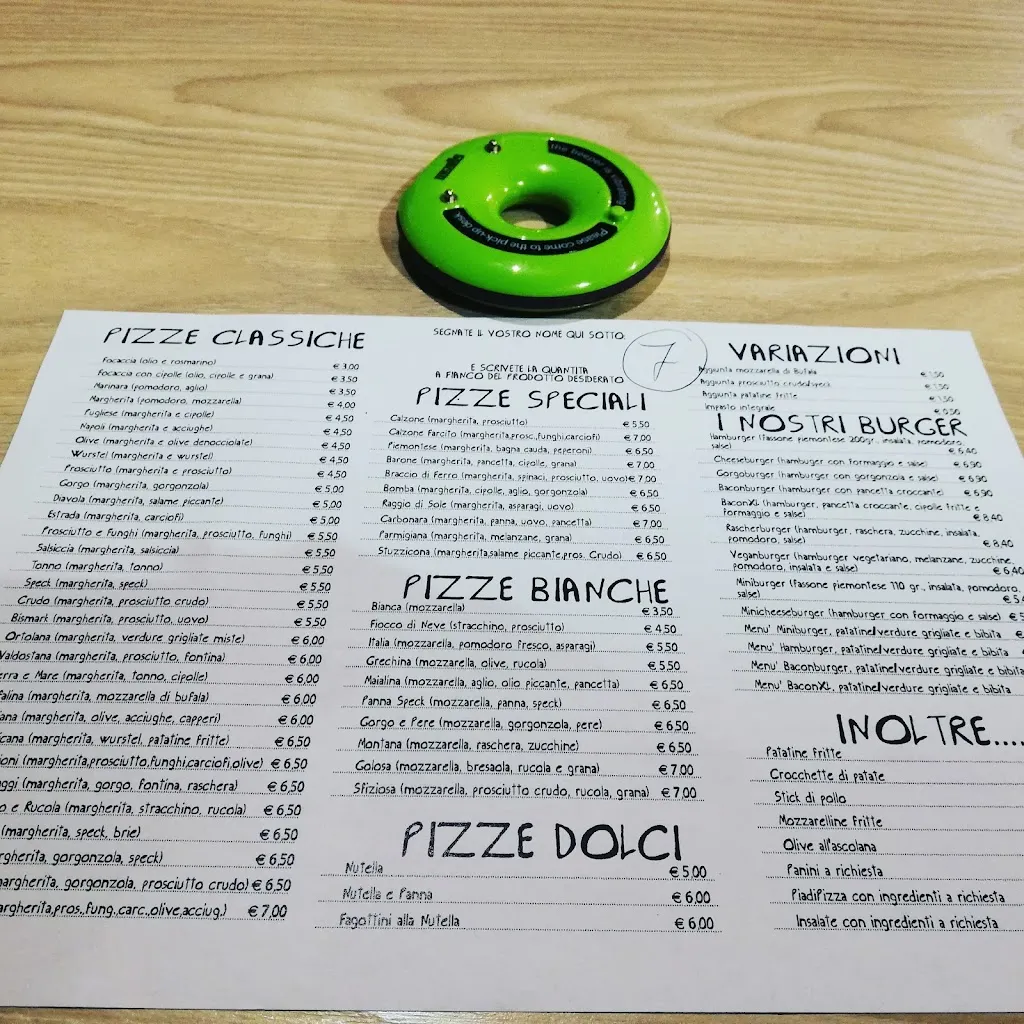 Please come to the pick-up desk
PIZZE CLASSICHE
Focaccia (olio e rosmarino) € 3,00
Focaccia con cipolle (olio, cipolle e grana) € 3,50
Marinara (pomodoro, aglio) € 3,50
Margherita (pomodoro, mozzarella) € 4,00
Pugliese (margherita e cipolle) € 4,50
Napoli (margherita e acciughe) € 4,50
Olive (margherita e olive denocciolate) € 4,50
Wurstel (margherita e wurstel) € 4,50
Prosciutto (margherita e prosciutto) € 4,50
Gorgo (margherita, gorgonzola) € 5,00
Diavola (margherita, salame piccante) € 5,00
Estrada (margherita, carciofi) € 5,00
Prosciutto e Funghi (margherita, prosciutto, funghi) € 5,50
Salsiccia (margherita, salsiccia) € 5,50
Tonno (margherita, tonno) € 5,50
Speck (margherita, speck) € 5,50
Crudo (margherita, prosciutto crudo) € 5,50
Bismark (margherita, prosciutto, uovo) € 5,50
Ortolana (margherita, verdure grigliate miste) € 6,00
Valdostana (margherita, prosciutto, fontina) € 6,00
erra e Mare (margherita, tonno, cipolle) € 6,00
falina (margherita, mozzarella di bufala) € 6,00
ana (margherita, olive, acciughe, capperi) € 6,00
icana (margherita, wurstel, patatine fritte) € 6,50
ioni (margherita,prosciutto,funghi,carciofi,olive) € 6,50
aggi (margherita, gorgo, fontina, raschera) € 6,50
o e Rucola (margherita, stracchino, rucola) € 6,50
(margherita, speck, brie) € 6,50
rgherita, gorgonzola, speck) € 6,50
argherita, gorgonzola, prosciutto crudo) € 6,50
argherita,pros.,fung.,carc.,olive,acciug.) € 7,00
SEGNATE IL VOSTRO NOME QUI SOTTO
7
E SCRIVETE LA QUANTITA
A FIANCO DEL PRODOTTO DESIDERATO
PIZZE SPECIALI
Calzone (margherita, prosciutto) € 5,50
Calzone Farcito (margherita,prosc.,funghi,carciofi) € 7,00
Piemontese (margherita, bagna cauda, peperoni) € 6,50
Barone (margherita, pancetta, cipolle, grana) € 7,00
Braccio di Ferro (margherita, spinaci, prosciutto, uovo) € 7,00
Bomba (margherita, cipolle, aglio, gorgonzola) € 6,50
Raggio di Sole (margherita, asparagi, uovo) € 6,50
Carbonara (margherita, panna, uovo, pancetta) € 7,00
Parmigiana (margherita, melanzane, grana) € 6,50
Stuzzicona (margherita,salame piccante,pros. Crudo) € 6,50
PIZZE BIANCHE
Bianca (mozzarella) € 3,50
Fiocco di Neve (stracchino, prosciutto) € 4,50
Italia (mozzarella, pomodoro fresco, asparagi) € 5,50
Grechina (mozzarella, olive, rucola) € 5,50
Maialina (mozzarella, aglio, olio piccante, pancetta) € 6,50
Panna Speck (mozzarella, panna, speck) € 6,50
Gorgo e Pere (mozzarella, gorgonzola, pere) € 6,50
Montana (mozzarella, raschera, zucchine) € 6,50
Golosa (mozzarella, bresaola, rucola e grana) € 7,00
Sfiziosa (mozzarella, prosciutto crudo, rucola, grana) € 7,00
PIZZE DOLCI
Nutella € 5,00
Nutella e Panna € 6,00
Fagottini alla Nutella € 6,00
VARIAZIONI
Aggiunta mozzarella di Bufala € 1,50
Aggiunta prosciutto crudo/speck € 1,50
Aggiunta patatine fritte € 1,50
Impasto integrale € 0,50
I NOSTRI BURGER
Hamburger (fassone piemontese 200gr., insalata, pomodoro,
salse) € 6,40
Cheeseburger (hamburger con formaggio e salse) € 6,90
Gorgoburger (hamburger con gorgonzola e salse) € 6,90
Baconburger (hamburger con pancetta croccante) € 6,90
BaconXL (hamburger, pancetta croccante, cipolle fritte e
formaggio e salse) € 8,40
Rascherburger (hamburger, raschera, zucchine, insalata,
pomodoro, salse) € 8,40
Veganburger (hamburger vegetariano, melanzane, zucchine,
pomodoro, insalata e salse) € 6,40
Miniburger (fassone piemontese 110 gr., insalata, pomodoro,
salse) € 5,4
Minicheeseburger (hamburger con formaggio e salse) € 5
Menu' Miniburger, patatine/verdure grigliate e bibita €
Menu' Hamburger, patatine/verdure grigliate e bibita €
Menu' Baconburger, patatine/verdure grigliate e bibita
Menu' BaconXL, patatine/verdure grigliate e bibita
INOLTRE....
Patatine fritte
Crocchette di patate
Stick di pollo
Mozzarelline fritte
Olive all'ascolana
Panini a richiesta
PiadiPizza con ingredienti a richiesta
Insalate con ingredienti a richiesta